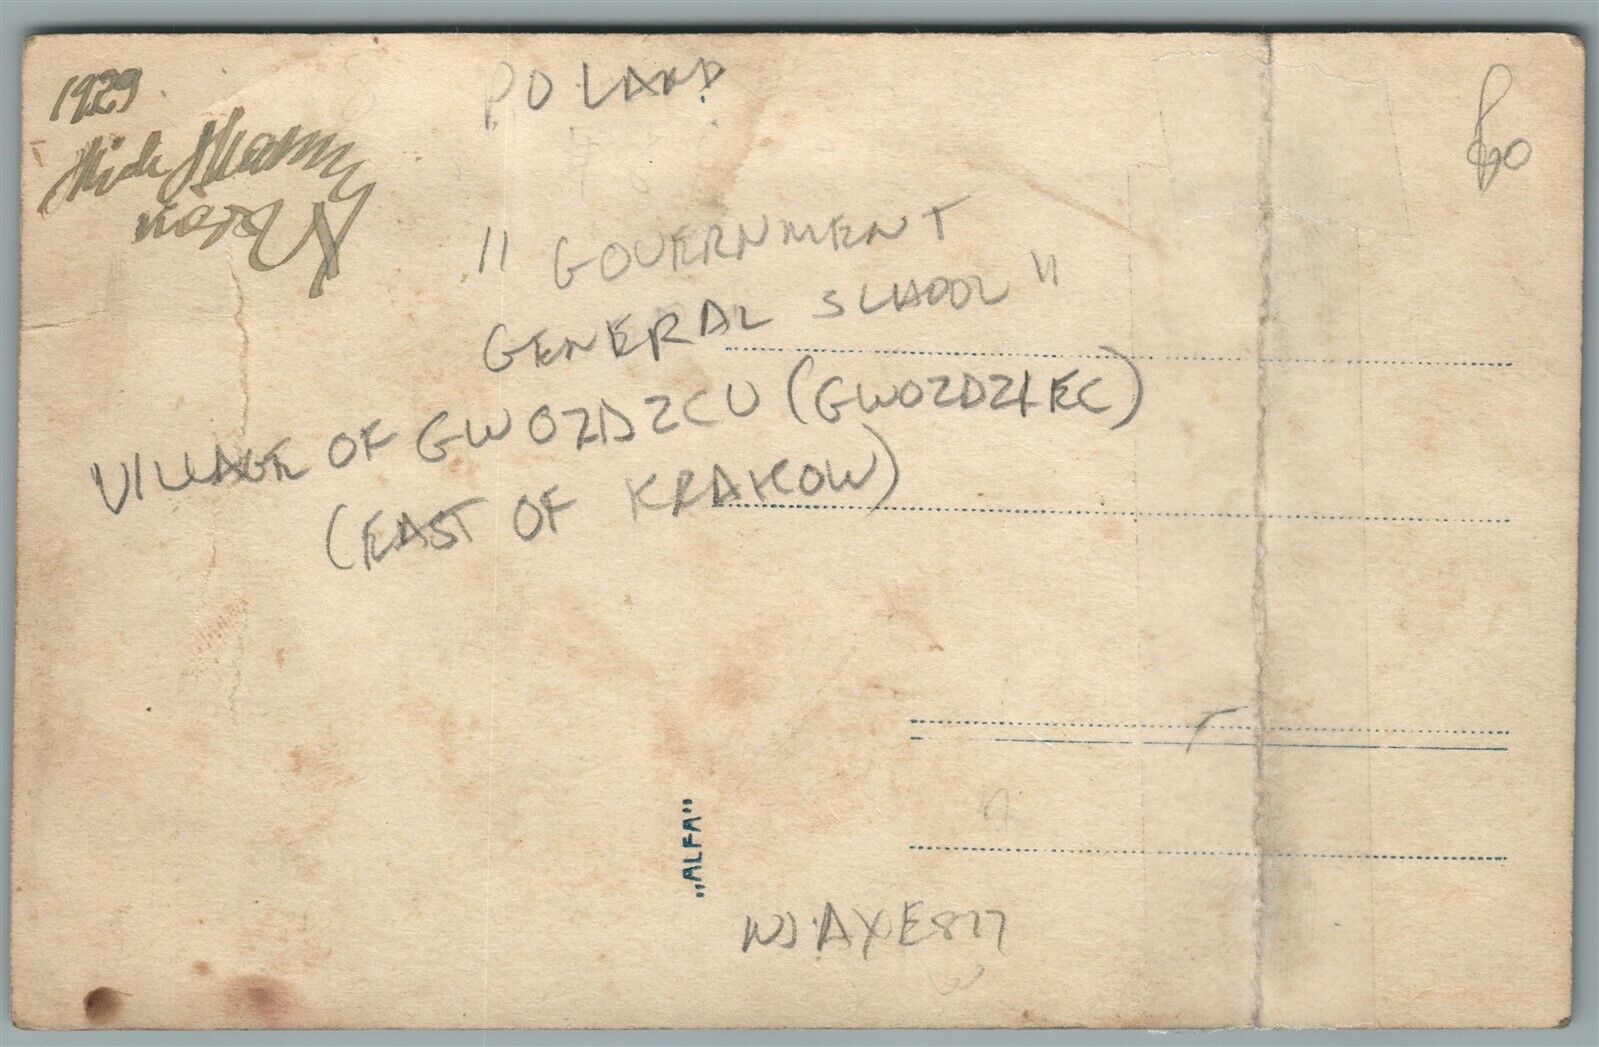 1929
POLAND
"GOVERNMENT
GENERAL SCHOOL"
VILLAGE OF GWOZDZCU (GWOZDZIEC)
(EAST OF KRAKOW)
„ALFA"
60